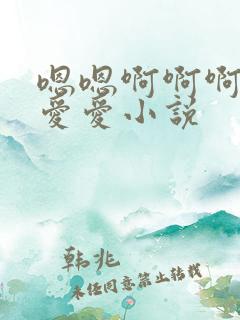 嗯嗯啊啊啊
爱爱小说
韩兆
未经同意禁止转载